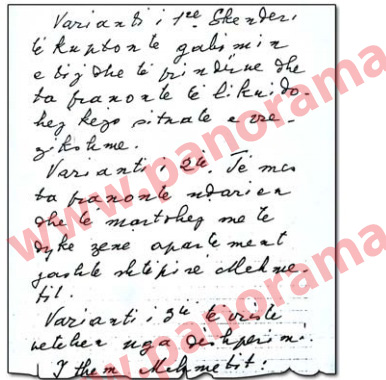 Varianti i 1re Skenderi
të kuptonte gabimin
e tij dhe të prindërve dhe
ta pranonte të likuido-
hej kejo situatë e rre-
zikshme.
Varianti i 2të. Të mos
ta pranonte ndarien
dhe të martohej me të
dyke zënë apartament
jashtë shtëpisë Mehme-
tit.
Varianti i 3të të vriste
vetëhen nga dishperimi.
I them Mehmetit:
www.panorama
www.panorama
www.panorama